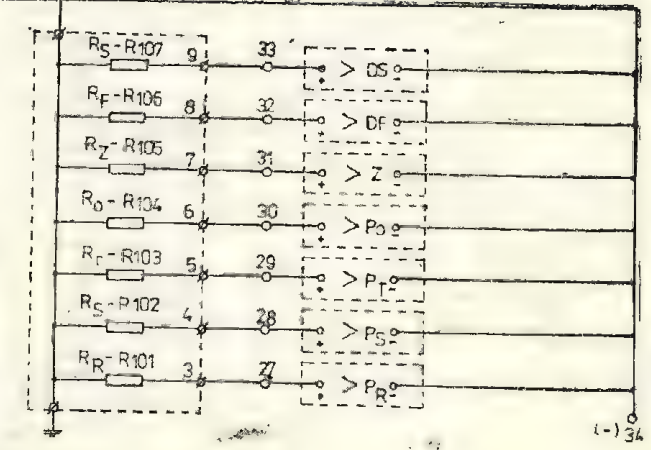 RS-R107 9 33 > DS
+ -
RF-R106 8 32 > DF
+ -
RZ-R105 7 31 > Z
+ -
R0-R104 6 30 > P0
+ -
RT-R103 5 29 > PT
+ -
RS-R102 4 28 > PS
+ -
RR-R101 3 27 > PR
+ -
(-) 34